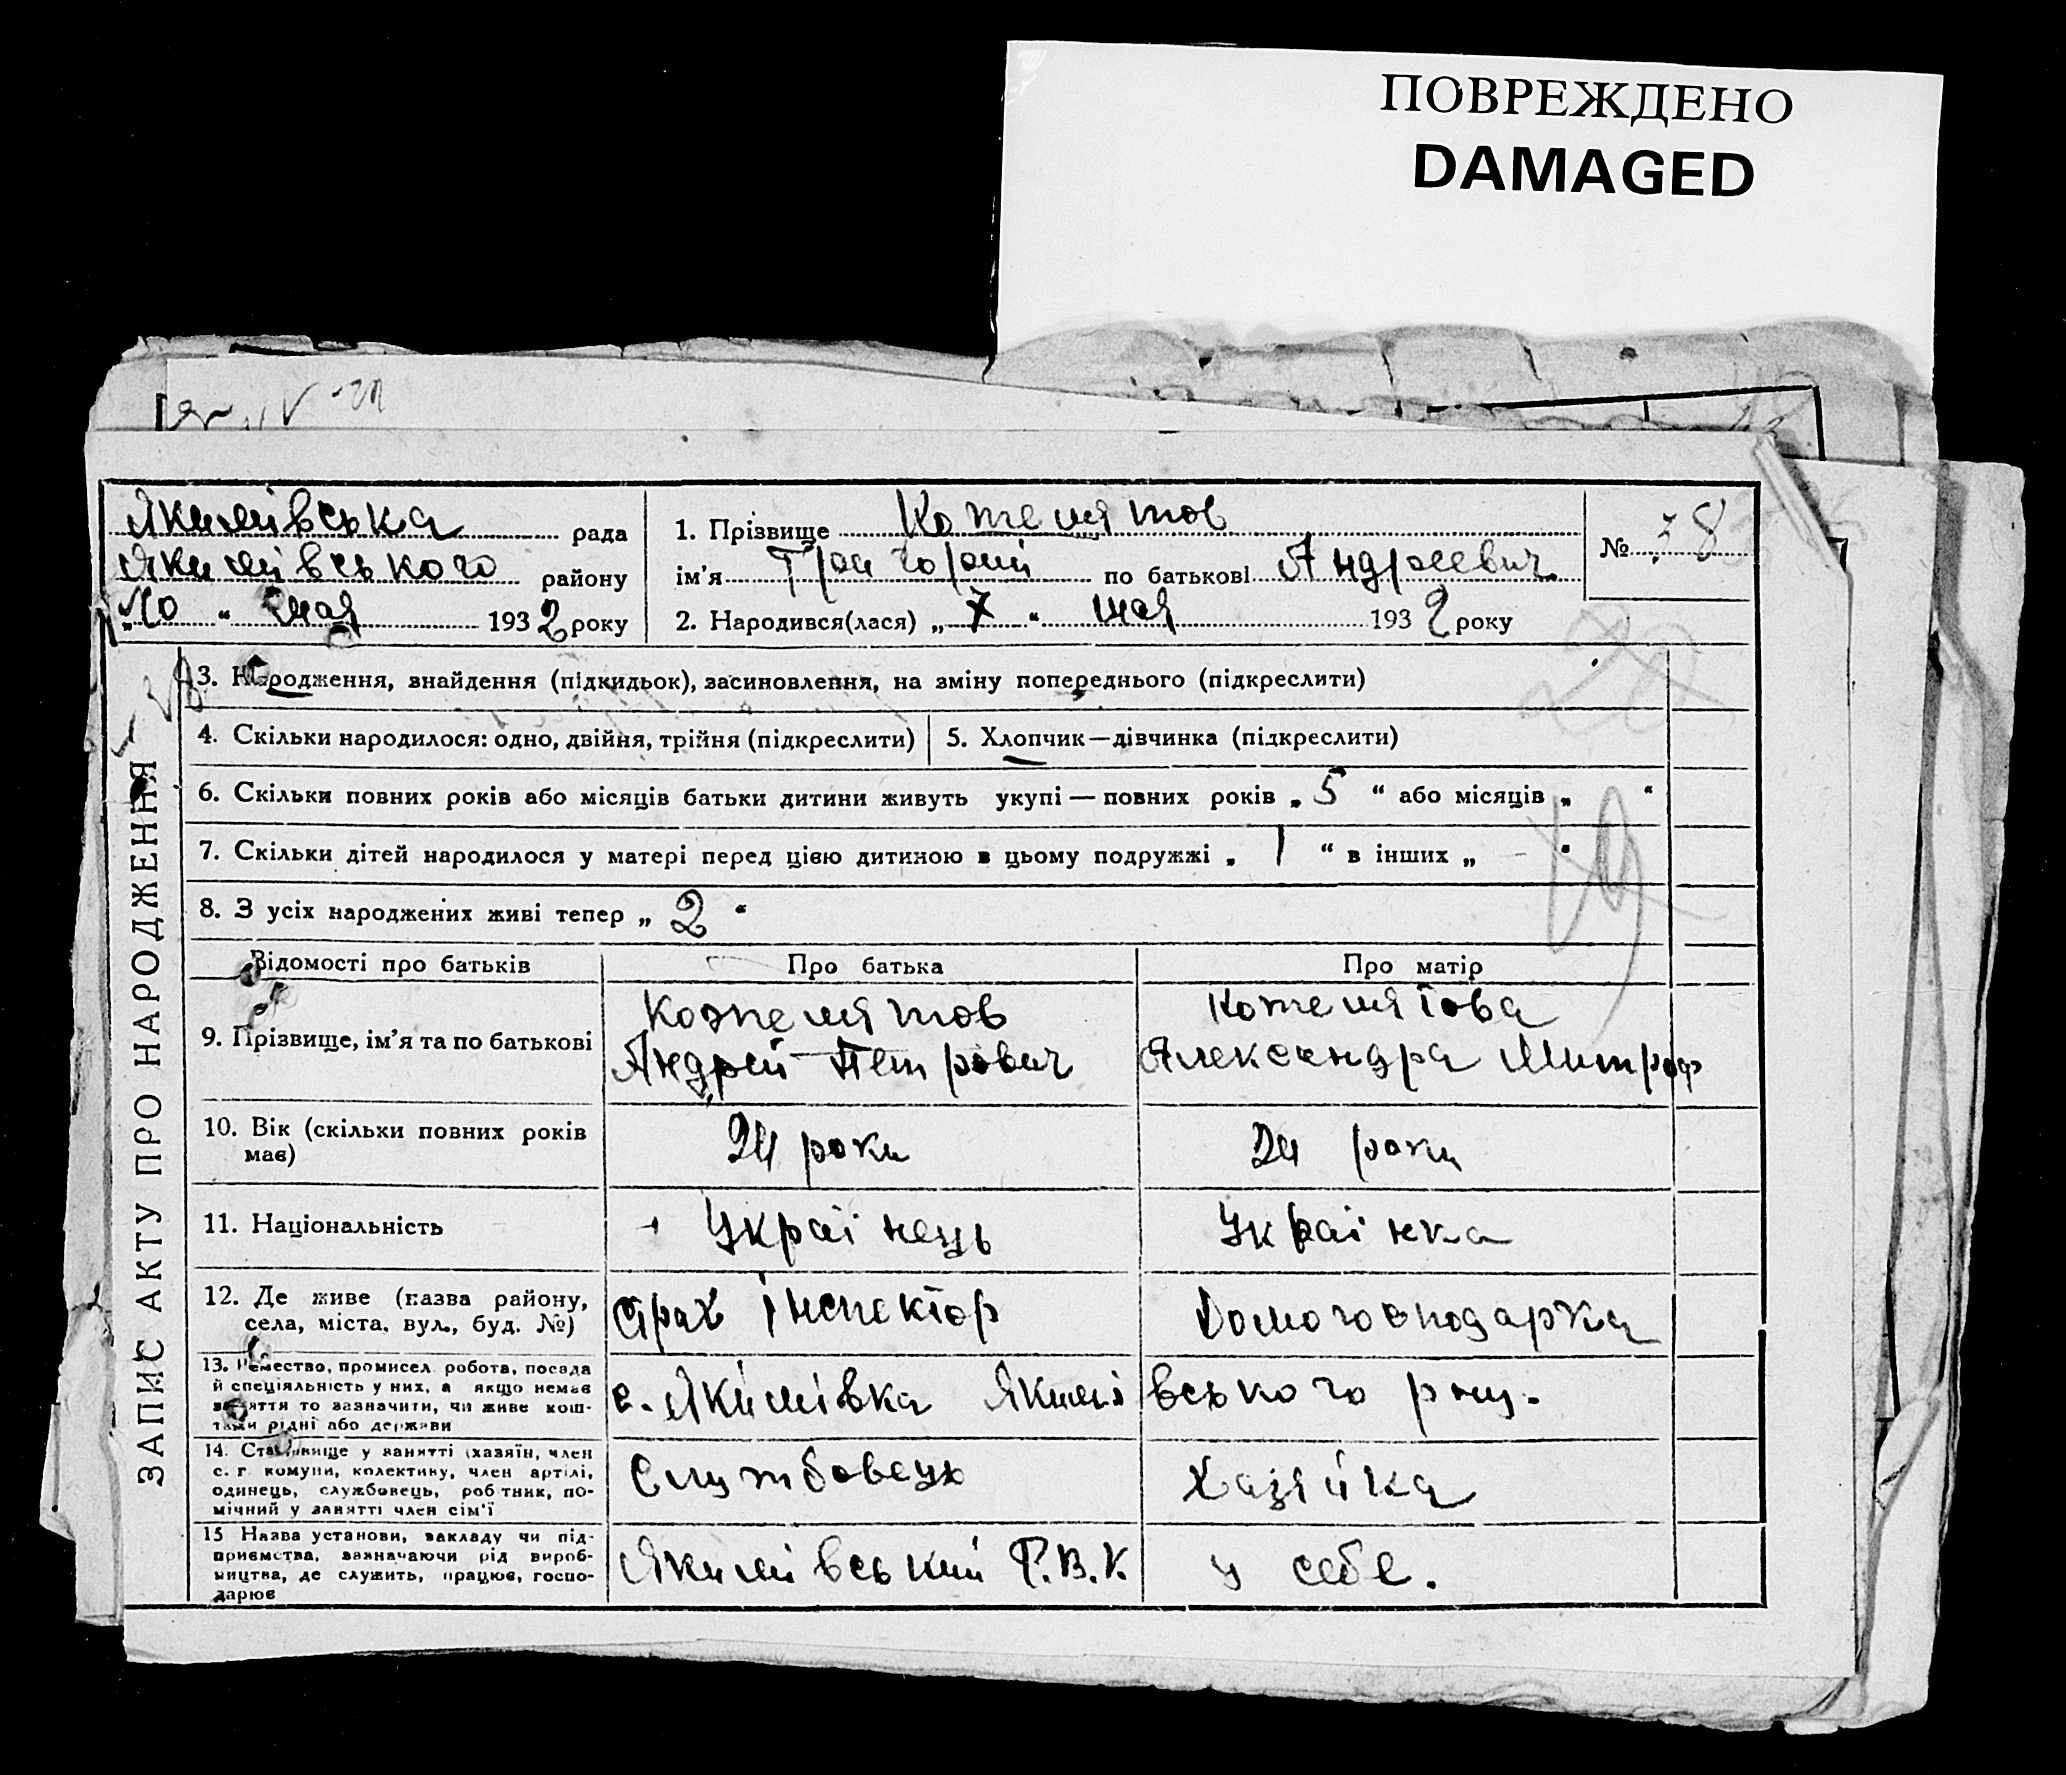 ПОВРЕЖДЕНО
DAMAGED
Якимівська рада
Якимівського району
„10 “ мая 1932 року
1. Прізвище Кожемятов
ім'я Григорий по батькові Андреевич
2. Народився(лася) „ 7 “ мая 1932 року
№ 38
ЗАПИС АКТУ ПРО НАРОДЖЕННЯ
3. Народження, знайдення (підкидьок), засиновлення, на зміну попереднього (підкреслити)
4. Скільки народилося: одно, двійня, трійня (підкреслити)
5. Хлопчик—дівчинка (підкреслити)
6. Скільки повних років або місяців батьки дитини живуть укупі — повних років „ 5 “ або місяців „ “
7. Скільки дітей народилося у матері перед цією дитиною в цьому подружжі „ 1 “ в інших „ — “
8. З усіх народжених живі тепер „ 2 “
Відомості про батьків
Про батька
Про матір
9. Прізвище, ім'я та по батькові
Кожемятов
Андрей Петрович
Кожемятова
Александра Митроф
10. Вік (скільки повних років
має)
24 роки
24 роки
11. Національність
Українець
Українка
12. Де живе (назва району,
села, міста, вул., буд. №)
Страх інспектор
Домогосподарка
13. Ремество, промисел, робота, посада
й спеціяльність у них, а якщо немає
заняття то зазначити, чи живе кош-
тами рідні або держави
с. Якимівка Якимівського рну.
14. Становище у занятті (хазяїн, член
с. г. комуни, колективу, член артілі,
одинець, службовець, робітник, по-
мічний у занятті член сім'ї
Службовець
Хазяйка
15 Назва установи, закладу чи під-
приємства, зазначаючи рід вироб-
ництва, де служить, працює, госпо-
дарює
Якимівський Р.В.К.
у себе.